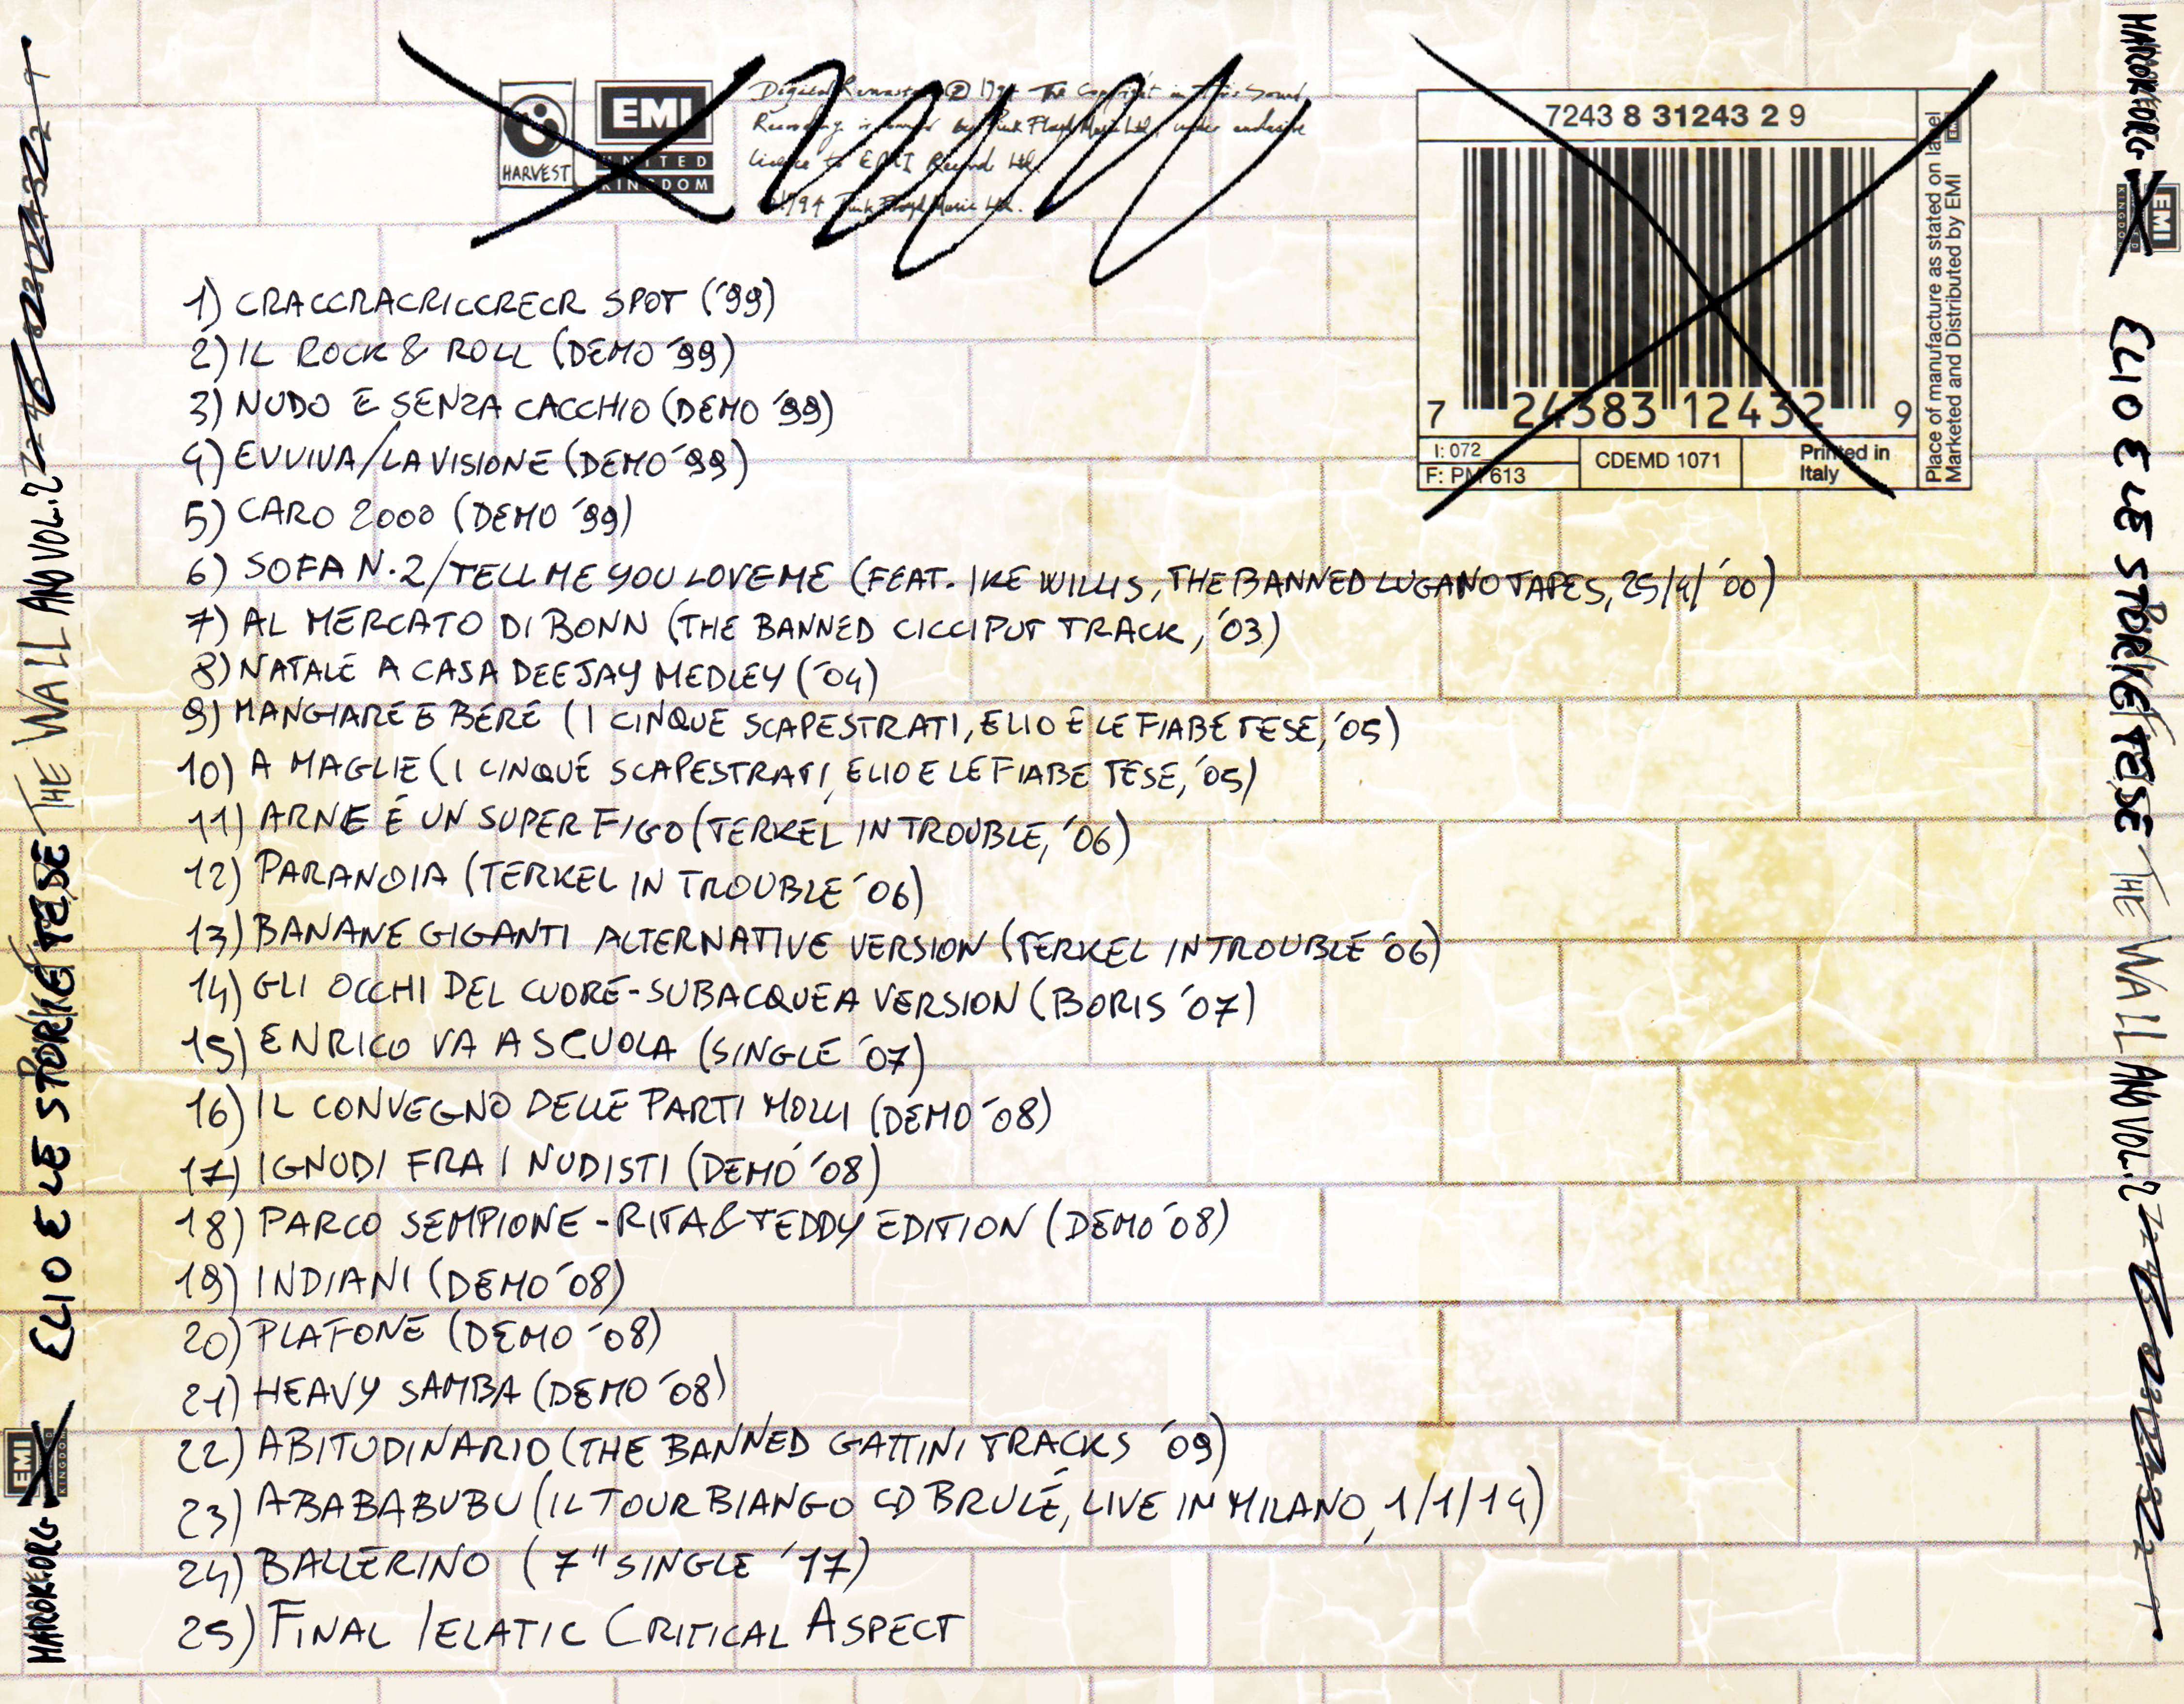 HARVEST
EMI
UNITED
KINGDOM
Digital Remaster ℗ 1994 The Copyright in this Sound
Recording is owned by Pink Floyd Music Ltd. under exclusive
licence to EMI Records Ltd.
1994 Pink Floyd Music Ltd.
7243 8 31243 2 9
7 24383 12432 9
I: 072
F: PM 613
CDEMD 1071
Printed in
Italy
Place of manufacture as stated on label
Marketed and Distributed by EMI
1) CRACCRACRICCRECR SPOT ('99)
2) IL ROCK & ROLL (DEMO '99)
3) NUDO E SENZA CACCHIO (DEMO '99)
4) EVVIVA/LA VISIONE (DEMO '99)
5) CARO 2000 (DEMO '99)
6) SOFA N.2/TELL ME YOU LOVE ME (FEAT. IKE WILLIS, THE BANNED LUGANO TAPES, 25/4/'00)
7) AL MERCATO DI BONN (THE BANNED CICCIPUT TRACK, '03)
8) NATALE A CASA DEEJAY MEDLEY ('04)
9) MANGIARE E BERE (I CINQUE SCAPESTRATI, ELIO E LE FIABE TESE, '05)
10) A MAGLIE (I CINQUE SCAPESTRATI, ELIO E LE FIABE TESE, '05)
11) ARNE É UN SUPER FIGO (TERKEL IN TROUBLE, '06)
12) PARANOIA (TERKEL IN TROUBLE '06)
13) BANANE GIGANTI ALTERNATIVE VERSION (TERKEL IN TROUBLE '06)
14) GLI OCCHI DEL CUORE-SUBACQUEA VERSION (BORIS '07)
15) ENRICO VA A SCUOLA (SINGLE '07)
16) IL CONVEGNO DELLE PARTI MOLLI (DEMO '08)
17) IGNUDI FRA I NUDISTI (DEMO '08)
18) PARCO SEMPIONE - RITA & TEDDY EDITION (DEMO '08)
19) INDIANI (DEMO '08)
20) PLAFONE (DEMO '08)
21) HEAVY SAMBA (DEMO '08)
22) ABITUDINARIO (THE BANNED GATTINI TRACKS '09)
23) ABABABUBU (IL TOUR BIANGO CD BRULÉ, LIVE IN MILANO, 1/1/14)
24) BALLERINO (7" SINGLE '17)
25) FINAL /ELATIC CRITICAL ASPECT
ELIO E LE STORIE TESE THE WALL AND VOL. 2
EMI
ELIO E LE STORIE TESE THE WALL AND VOL. 2
EMI